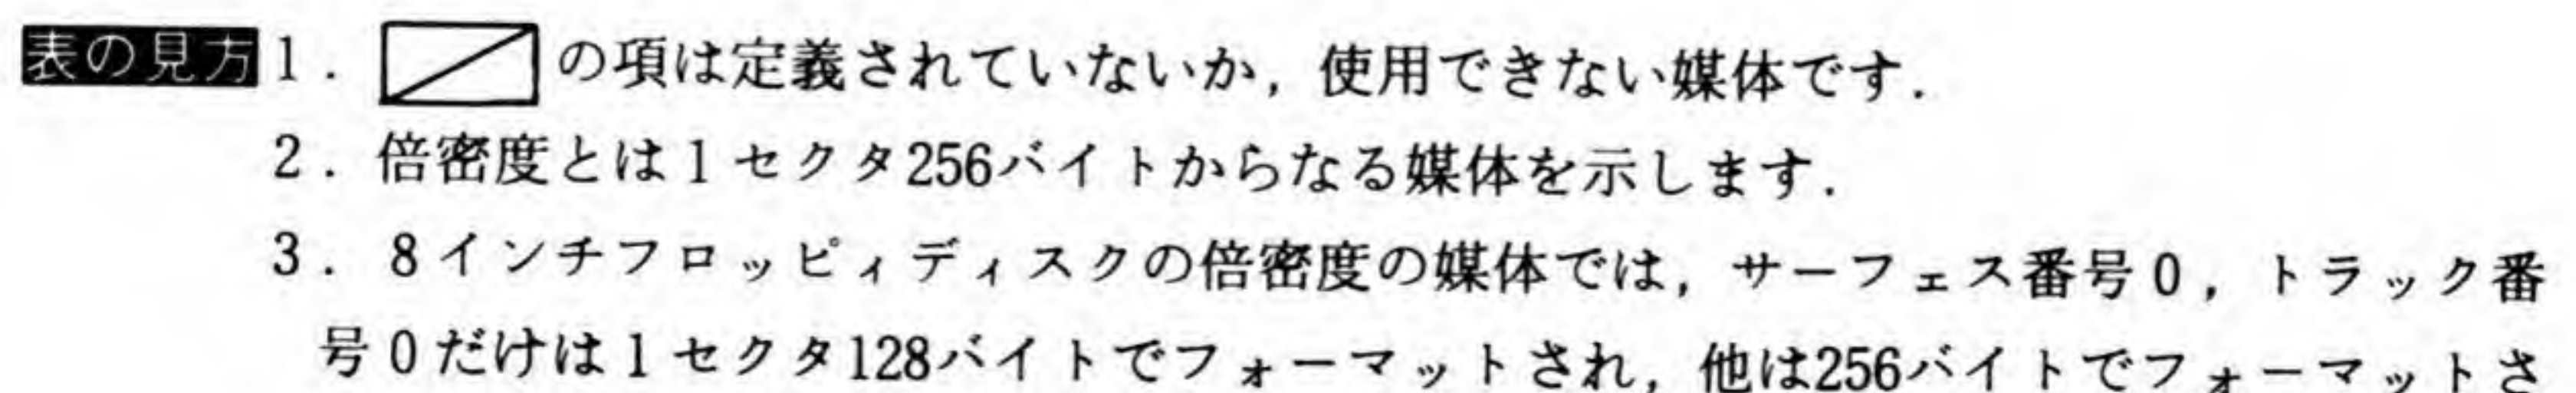 表の見方 1. の項は定義されていないか，使用できない媒体です．
2. 倍密度とは1セクタ256バイトからなる媒体を示します．
3. 8インチフロッピィディスクの倍密度の媒体では，サーフェス番号0，トラック番
号0だけは1セクタ128バイトでフォーマットされ，他は256バイトでフォーマットさ